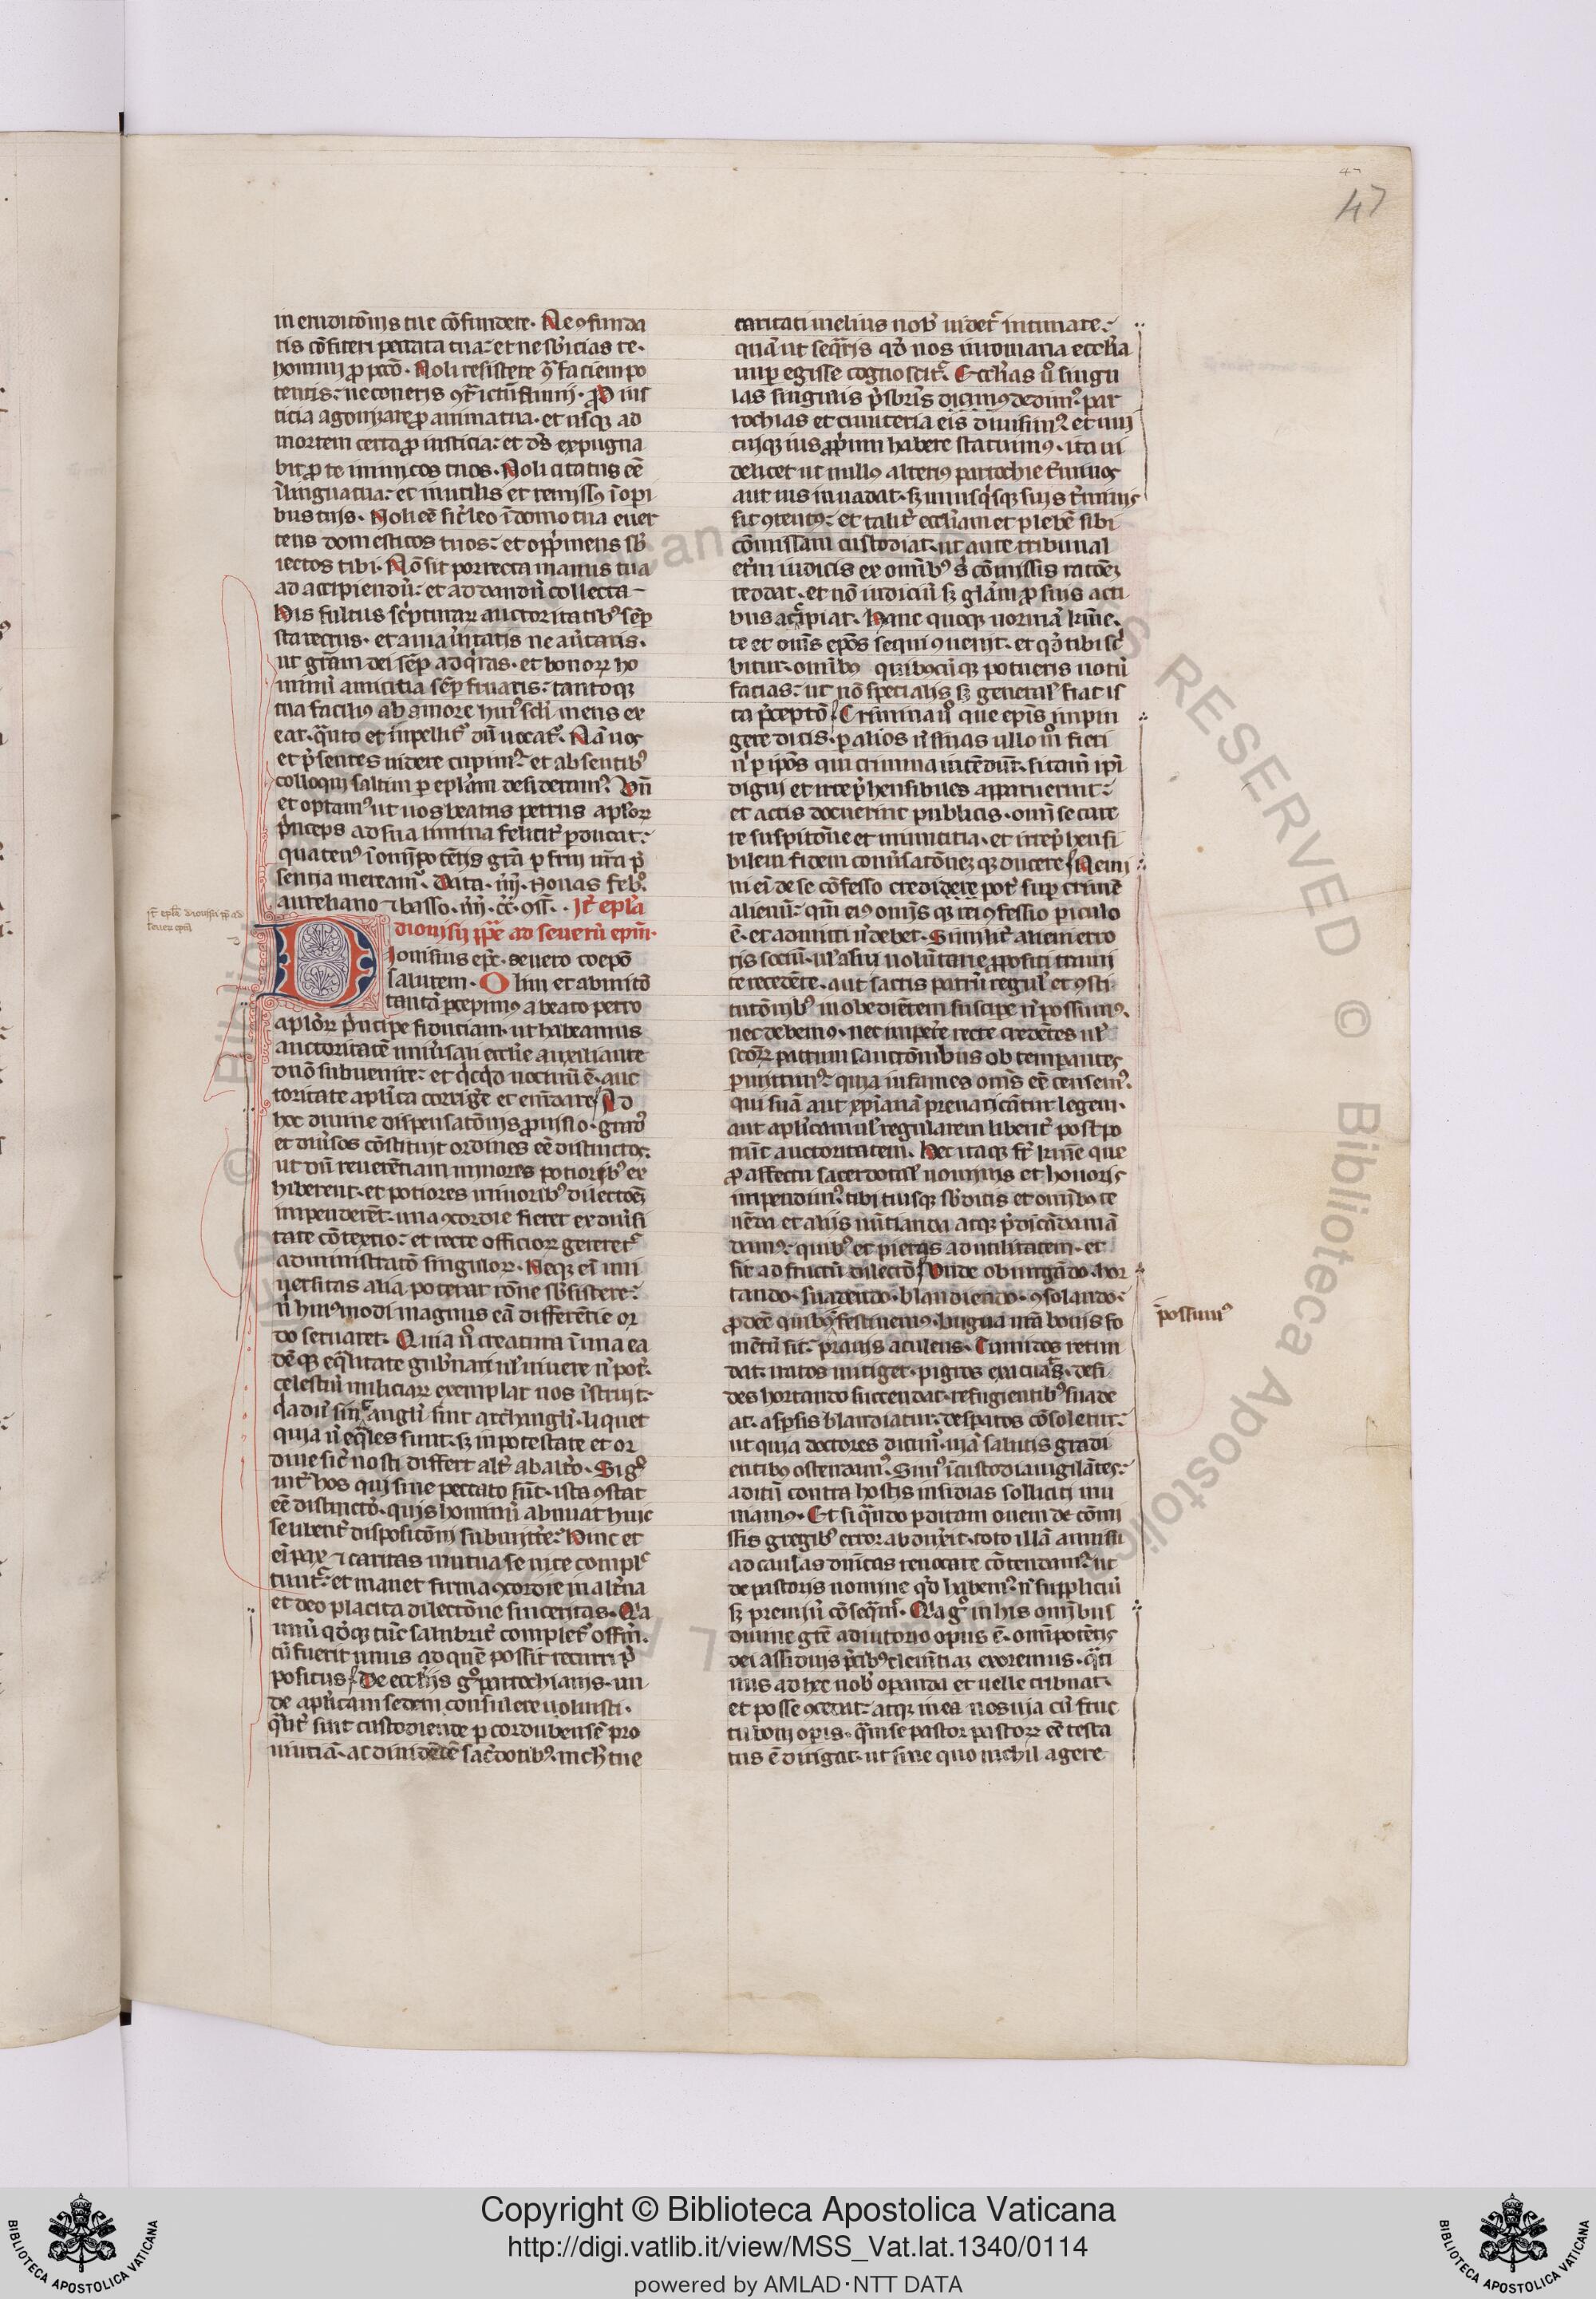 47
47
in eruditõnis tue cõfundere. Ne ꝯfunda
tis cõfiteri peccata tua: et ne sb̾icias te.
homini ꝓ pcc̃o. Noli resistere ꝯ̃ faciem po
tentis: ne coneris ꝯt̾ ictũ fluuij. Pro ius
ticia agonizare ꝓ anima tua. et usqꝫ ad
mortem certa ꝓ iusticia: et dˢ expugna
bit ꝓ te inimicos tuos. Noli citatus eẽ
ĩ lingua tua: et inutilis et remissꝰ ĩ opi
bus tuis. Noli eẽ sic̾ leo ĩ domo tua euer
tens domesticos tuos: et opp̾mens sb̾
iectos tibi. Nõ sit porrecta manus tua
ad accipiendũ: et ad dandũ collecta
His fultus sc̾pturaꝝ auctoritatibꝰ sẽp
sta rectus. et a ṽitatis ne ãuertaris.
ut gr̃am dei sẽp adq̾ras. et bonoꝝ ho
minũ amicitia sẽp fruaris: tantoqꝫ
tua faciliꝰ ab amore huiꝰ sc̃li mens ex
eat. q̃nto et ĩpellit̾ dũ uocat̾. Nã uos
et p̾sentes uidere cupimꝰ: et absentibꝰ
colloqui saltim ꝑ ep̃lam desideramꝰ. Vñ
et optamꝰ ut uos beatus petrus apl̃oꝝ
p̾nceps ad sua limina felicit̾ ꝑducat:
quatenꝰ ĩ omĩpotẽtis gr̃a ꝑ frui ur̃a p̾
sentia mereamꝰ. Data. iiij. Nonas febꝰ.
aureliano ⁊ basso. iiij. cc̃. ꝯss̃. It̾ ep̃la
dionisij pp̃e ad seuerũ ep̃m.
Dionisius ep̃c. Seuero coep̃o
salutem. Olim et ab initõ
tantã ꝑcepimꝰ a beato petro
apl̃oꝝ p̾ncipe fiduciam. ut habeamus
auctoritatẽ uniũsali eccl̃ie auxiliante
dño subuenire: et q̾cq̾d nociuũ ẽ. auc
toritate apl̃ica corrig̾e et emẽdare. Ad
hoc diuine dispensatõnis ꝓuisio. gradꝰ
et diũsos cõstituit ordines eẽ distinctos:
ut dũ reuerẽtiam minores potioribꝰ ex
hiberent. et potiores minoribꝰ dilectõeꝫ
impenderẽt. una ꝯcordie fieret ex diũsi
tate cõtextio: et recte officioꝝ gereret̾
administratõ singuloꝝ. Neqꝫ eĩ uni
uersitas alia poterat rõne sb̾sistere:
ñ huiꝰmodi magnus eã differẽtie or
do seruaret. Quia ñ creatura ĩ una ea
dẽqꝫ eq̃litate gub̾nari ul̾ uiuere ñ pot̾.
celestiũ miliciaꝝ exemplar nos ĩstruit.
q̾a dũ sint angl̾i. sint archangl̾i. liquet
quia ñ eq̃les sunt. sꝫ in potestate et or
dine sic̾ nosti differt alt̾ ab alt̾o. Si gͦ
int̾ hos qui sine peccato sũt. ista ꝯstat
eẽ distinctõ. quis hominũ abnuat huic
se libent̾ dispositõni submitte̾. Hinc et
eĩ pax ⁊ caritas mutua se uice compl̾c
tunt̾: et manet firma ꝯcordie in alt̾na
et deo placita dilectõne sinceritas. Q̾a
unũ qͦdqꝫ tũc salubrit̾ complet̾ offm̃.
cũ fuerit unus ad quẽ possit recurri p̾
positus. De eccl̾ijs gͦ parrochianis. un
de apl̃icam sedem consulere uoluisti.
q̃lit̾ sint custodiende ꝑ cordubensẽ pro
uinciã. ac diuidẽde sac̾dotibꝰ. nich̾ tue
It̾ epl̃a dionisii pp̃ ad
seuer ep̃m
caritati melius nob̾ uidet̾ intimare:
quã ut seq̃ris qͦd nos in romana eccl̾ia
nuꝑ egisse cognoscit̾. Eccl̾ias ũ singu
las singulis p̾sb̾ris dicimꝰ dedimꝰ. par
rochias et cimiteria eis diuisimꝰ. et uni
cuiqꝫ ius ꝓp̾um habere statuimꝰ. ita ui
delicet ut nullꝰ alteriꝰ parrochie t̾minos
aut ius inuadat. sꝫ unusq̾sqꝫ suis t̾minis
sit ꝯtentꝰ: et talit̾ eccl̾iam et plebẽ sibi
cõmissam custodiat. ut ante tribunal
et̾ni iudicis ex omĩbꝰ s̾ cõmissis racõeꝫ
reddat. et nõ iudiciũ sꝫ gl̃am ꝓ suis acti
bus accipiat. Hanc quoqꝫ normã kr̃me.
te et om̃s ep̃os sequi ꝯuenit. et qͦ tibi sc̾
bitur. omĩbꝰ quibꝰcũqꝫ potueris notũ
facias: ut nõ specialis sꝫ general̾ fiat is
ta p̾ceptõ. Crimina ũ que ep̃is impin
gere dicis. ꝑ alios ñ sinas ullo mͦ fieri
ñ ꝑ ip̃os qui crimina intẽdũt. si tam̃ ip̃i
digni et irrep̾hensibiles apparuerint:
et actis docuerint publicis. omĩ se care
re suspitõne et inimicitia. et irrep̾hensi
bilem fidem conũsatõneqꝫ ducere. Nemi
ni eĩ de se cõfesso credidere pot̾ suꝑ crimẽ
alienũ: qm̃ eiꝰ omĩs qꝫ rei ꝯfessio ꝑiculo
ẽ. et admitti ñ debet. Similit̾ autem erro
ris sociũ. ul̾ a sui uolũtarie ꝓpositi trami
te recedẽte. aut sactis patrũ regul̾ et ꝯsti
tutõnibꝰ inobedientem suscipe ñ possumꝰ.
nec debemꝰ. nec impet̾e recte credẽtes ul̾
sc̃oꝝ patrum sanctõnibus obtemꝑantes
ꝑmittimꝰ: quia infames om̃s eẽ censemꝰ.
qui suã aut xp̃ianã preuaricãtur legem.
aut apl̃icam ul̾ regularem libent̾ postpo
nũt auctoritatem. Hec itaqꝫ fr̃ kr̃me que
ꝓ affectu sacerdotal̾ nominis et honoris
impendimꝰ. tibi tuisqꝫ sb̾ditis et omĩbꝰ te
nẽda et alijs nũtianda atqꝫ p̾dicãda mã
damꝰ: quibꝰ et pietas ad utilitatem. et
sit ad fructũ dilectõ. Vnde obiurgãdo. hor
tando. suadendo. blandiendo. ꝯsolando:
ꝓdeẽ quibꝰ festinemꝰ. lingua nr̃a bonis fo
mẽtũ sit: prauis aculeus. Tumidos retun
dat. iratos mitiget. pigros exacuat. desi
des hortando succendat. refugientibꝰ suade
at. asp̾sis blandiatur: desp̾atos cõsoletur:
ut quia doctores dicimꝰ. uiã salutis gradi
entibꝰ ostendamꝰ. Simꝰ ĩ custodia uigilãtes:
aditũ contra hostis insidias solliciti mu
niamꝰ. Et si q̃ndo ꝑditam ouem de cõmi
ssis gregibꝰ error abdux̾it. toto illã annisu
ad caulas dñicas reuocare cõtendamꝰ: ut
de pastoris nomine qͦd habemꝰ. ñ suppliciũ
sꝫ premiũ cõseq̃mꝰ. Q̾a gͦ in his omĩbus
diuine gr̃e adiutorio opus ẽ. omĩpotẽtis
dei assiduis p̾cibꝰ clemẽtiaꝫ exoremus. q̾ti
nus ad hec nob̾ oꝑanda et uelle tribuat.
et posse ꝯcedat: atqꝫ in ea nos uia cũ fruc
tu boni oꝑis. q̃m se pastor pastoꝝ eẽ testa
tus ẽ dirigat. ut sine quo nichil agere
possumꝰ
Copyright © Biblioteca Apostolica Vaticana
http://digi.vatlib.it/view/MSS_Vat.lat.1340/0114
powered by AMLAD·NTT DATA
BIBLIOTECA APOSTOLICA VATICANA
BIBLIOTECA APOSTOLICA VATICANA